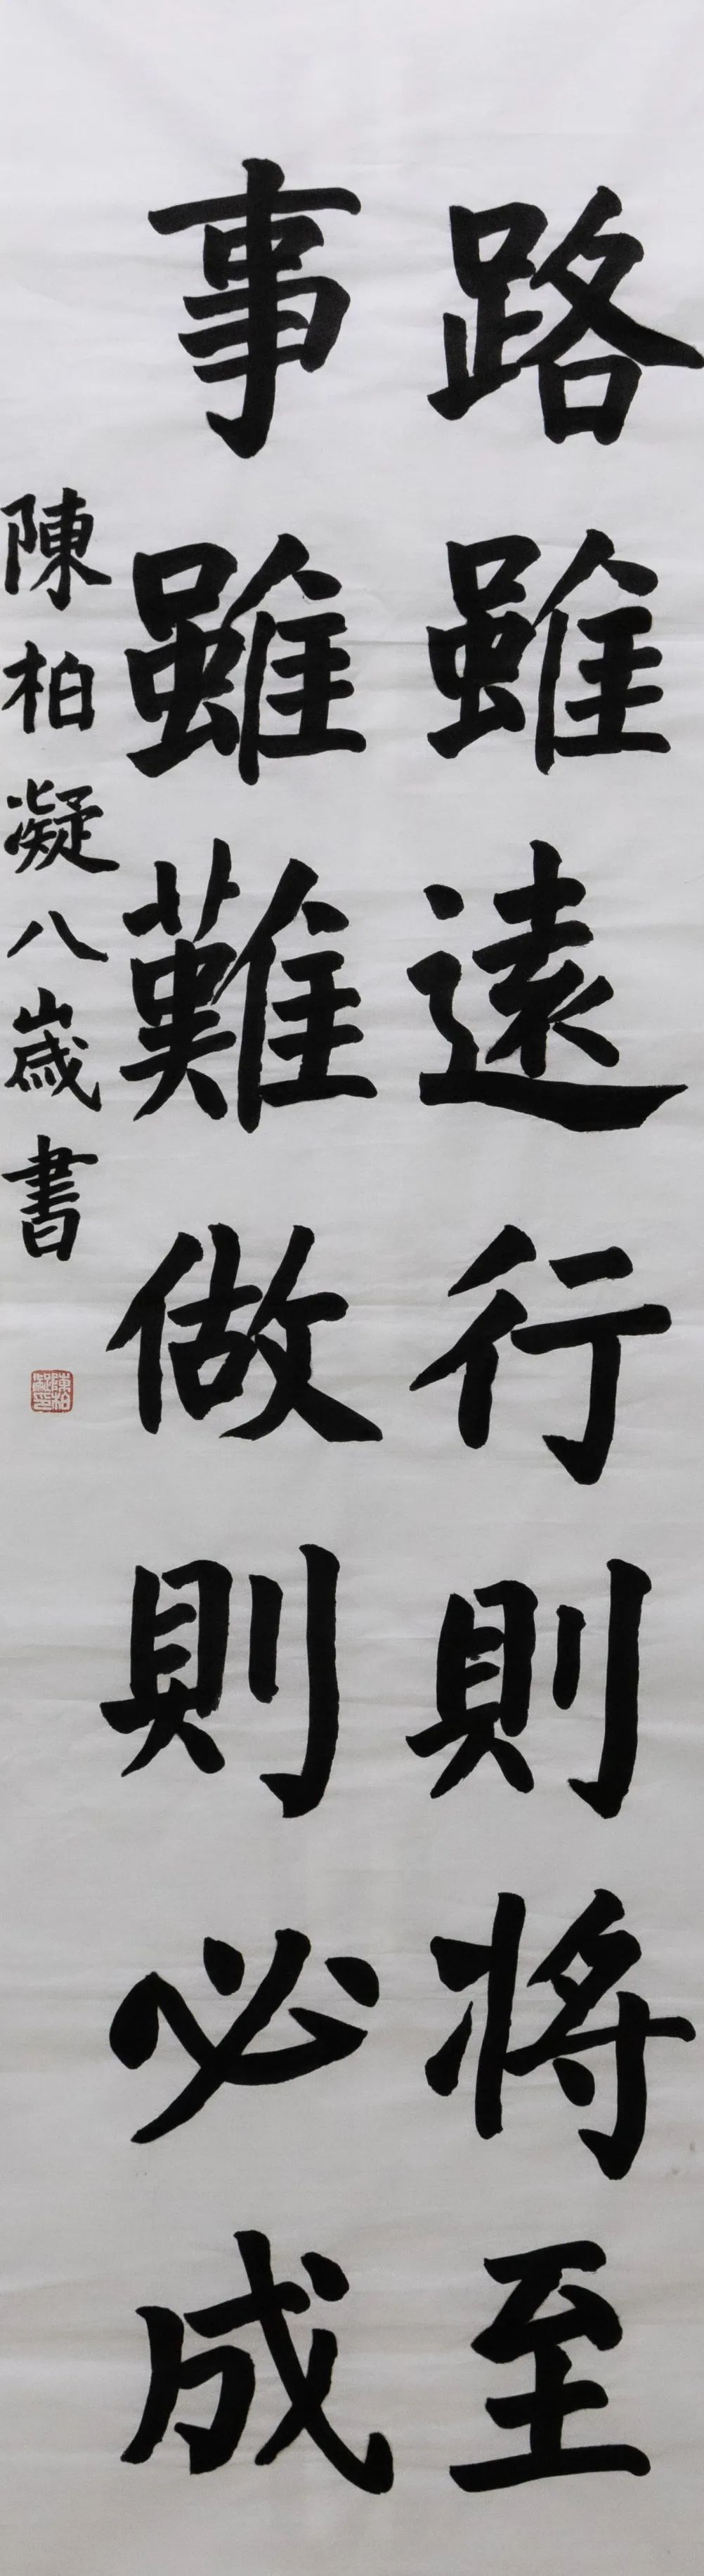 路雖遠行則將至
事雖難做則必成
陳柏凝八歲書
陳柏凝印